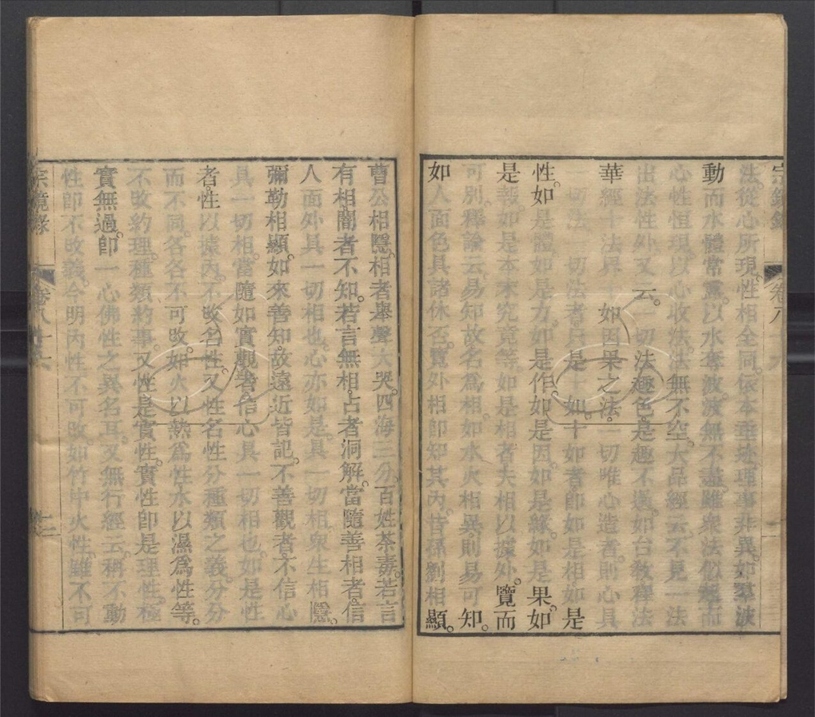 宗鏡錄 卷八
法從心所現。性相全同。依本垂迹。理事非異。如羣波
動而水體常寧。以水奪波。波無不盡。雖衆法似起而
心性恒現。以心收法。法無不空。大品經云。不見一法
出法性外。又云。一切法趣色。是趣不過。如台教釋法
華經十法界。十如因果之法。一切唯心造者。則心具
一切法。一切法者。只是十如。十如者。即如是相。如是
性。如是體。如是力。如是作。如是因。如是緣。如是果。如
是報。如是本末究竟等。如是相者。夫相以據外。覽而
可別。釋論云。易知故名爲相。如水火相異。則易可知。
如人面色。具諸休否。覽外相。即知其內。昔孫劉相顯。
曹公相隱。相者舉聲大哭。四海三分。百姓荼毒。若言
有相。闇者不知。若言無相。占者洞解。當隨善相者。信
人面外具一切相也。心亦如是。具一切相。衆生相隱。
彌勒相顯。如來善知。故遠近皆記。不善觀者。不信心
具一切相。當隨如實觀者。信心具一切相也。如是性
者。性以據內。不改名性。又性名性分。種類之義。分分
而不同。各各不可改。如火以熱爲性。水以濕爲性等。
不改約理。種類約事。又性是實性。實性即是理性。極
實無過。即一心佛性之異名耳。又無行經云。稱不動
性。即不改義。今明內性不可改。如竹中火性。雖不可
宗鏡錄 卷八十六